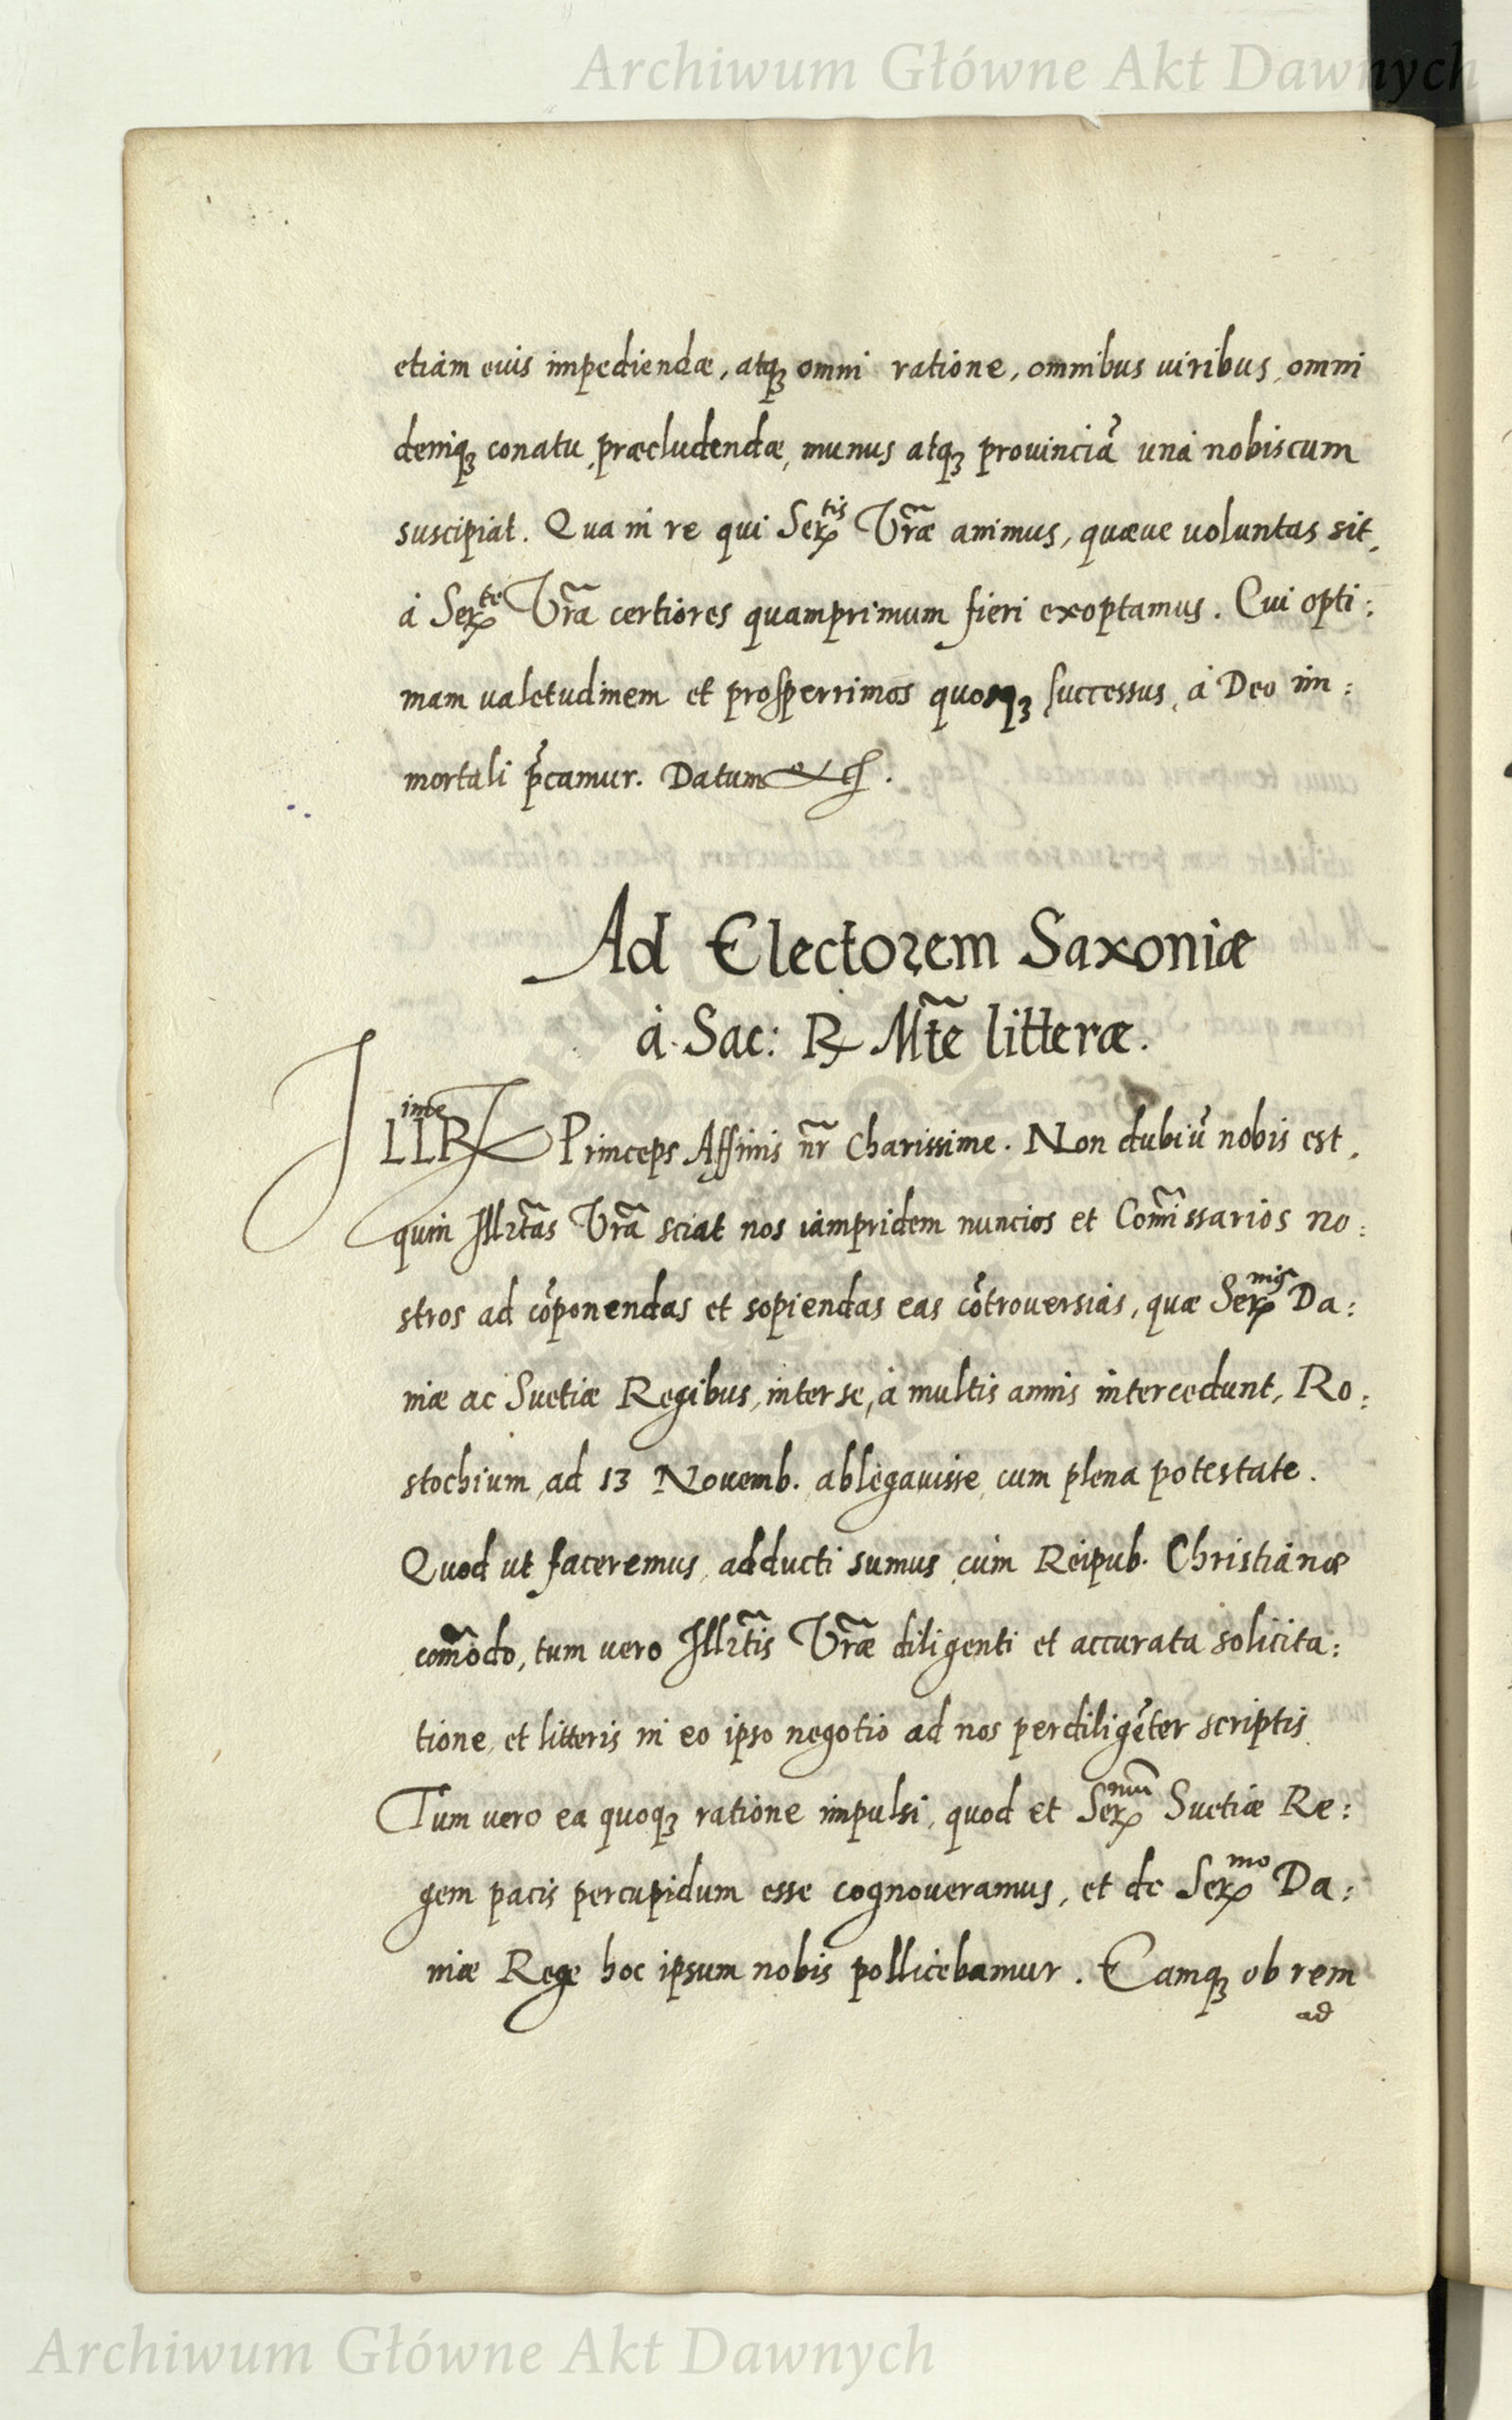 Archiwum Główne Akt Dawnych
etiam eius impediendæ, atqꝫ omni ratione, omnibus uiribus, omni
deniqꝫ conatu, præcludendæ, munus atqꝫ prouinciā unà nobiscum
suscipiat. Qua in re qui Serᵗⁱˢ Vr̃æ animus, quæue uoluntas sit,
à Serᵗᵉ Vr̃a certiores quamprimum fieri exoptamus. Cui opti:
mam ualetudinem et prosperrimos quosqꝫ successus, à Deo im:
mortali p̄camur. Datum etc.
Ad Electorem Saxoniæ
à Sac: R Mt̃e litteræ.
ILLRⁱᵐᵉ Princeps Affinis nr̃ Charissime. Non dubiū nobis est,
quin Illrt̃as Vr̃a sciat nos iampridem nuncios et Com̃issarios no:
stros ad cōponendas et sopiendas eas cōtrouersias, quæ Serᵐⁱˢ Da:
niæ ac Suetiæ Regibus, inter se, à multis annis intercedunt, Ro:
stochium, ad 13 Nouemb. ablegauisse, cum plena potestate.
Quod ut faceremus, adducti sumus cùm Reipub. Christianæ
com̃odo, tum uero Illrt̃is Vr̃æ diligenti et accurata solicita:
tione, et litteris in eo ipso negotio ad nos perdiligēter scriptis.
Tum uero ea quoqꝫ ratione impulsi, quod et Serᵐᵘ̄ Suetiæ Re:
gem pacis percupidum esse cognoueramus, et de Serᵐᵒ Da:
niæ Rege hoc ipsum nobis pollicebamur. Eamqꝫ ob rem
ad
Archiwum Główne Akt Dawnych